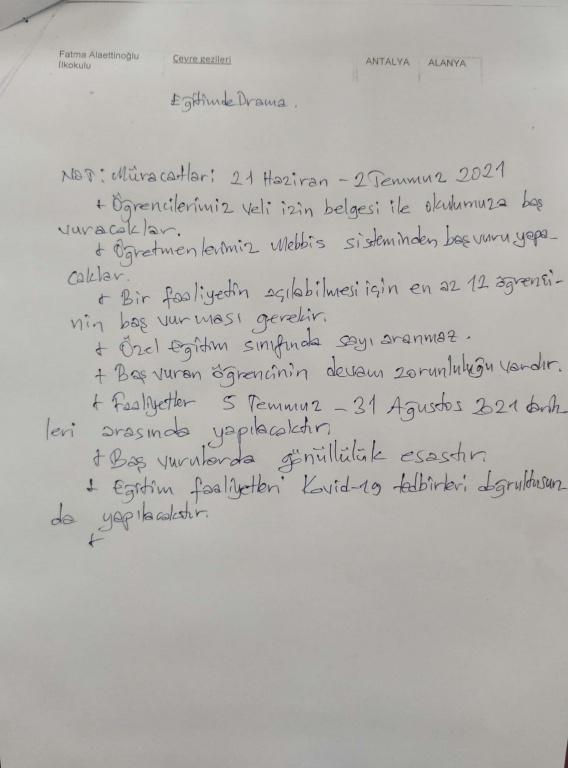 Fatma Alaettinoğlu İlkokulu Çevre gezileri ANTALYA ALANYA
Eğitimde Drama.
NOT: Müracatları 21 Haziran - 2 Temmuz 2021
+ Öğrencilerimiz veli izin belgesi ile okulumuza baş
vuracaklar.
+ Öğretmenlerimiz Mebbis sisteminden başvuru yapa-
caklar.
+ Bir faaliyetin açılabilmesi için en az 12 öğrenci-
nin baş vurması gerekir.
+ Özel eğitim sınıfında sayı aranmaz.
+ Baş vuran öğrencinin devam zorunluluğu vardır.
+ Faaliyetler 5 Temmuz - 31 Ağustos 2021 tarih
leri arasında yapılacaktır.
+ Baş vurularda gönüllülük esastır.
+ Eğitim faaliyetleri Kovid-19 tedbirleri doğrultusun
da yapılacaktır.
+